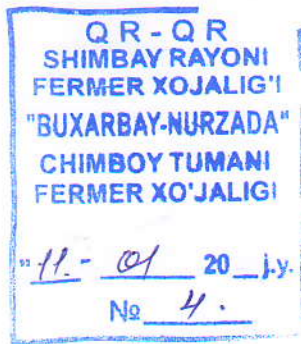 QR-QR
SHIMBAY RAYONI
FERMER XOJALIG'I
"BUXARBAY-NURZADA"
CHIMBOY TUMANI
FERMER XO'JALIGI
"11." - 01 20__j.y.
№ 4.